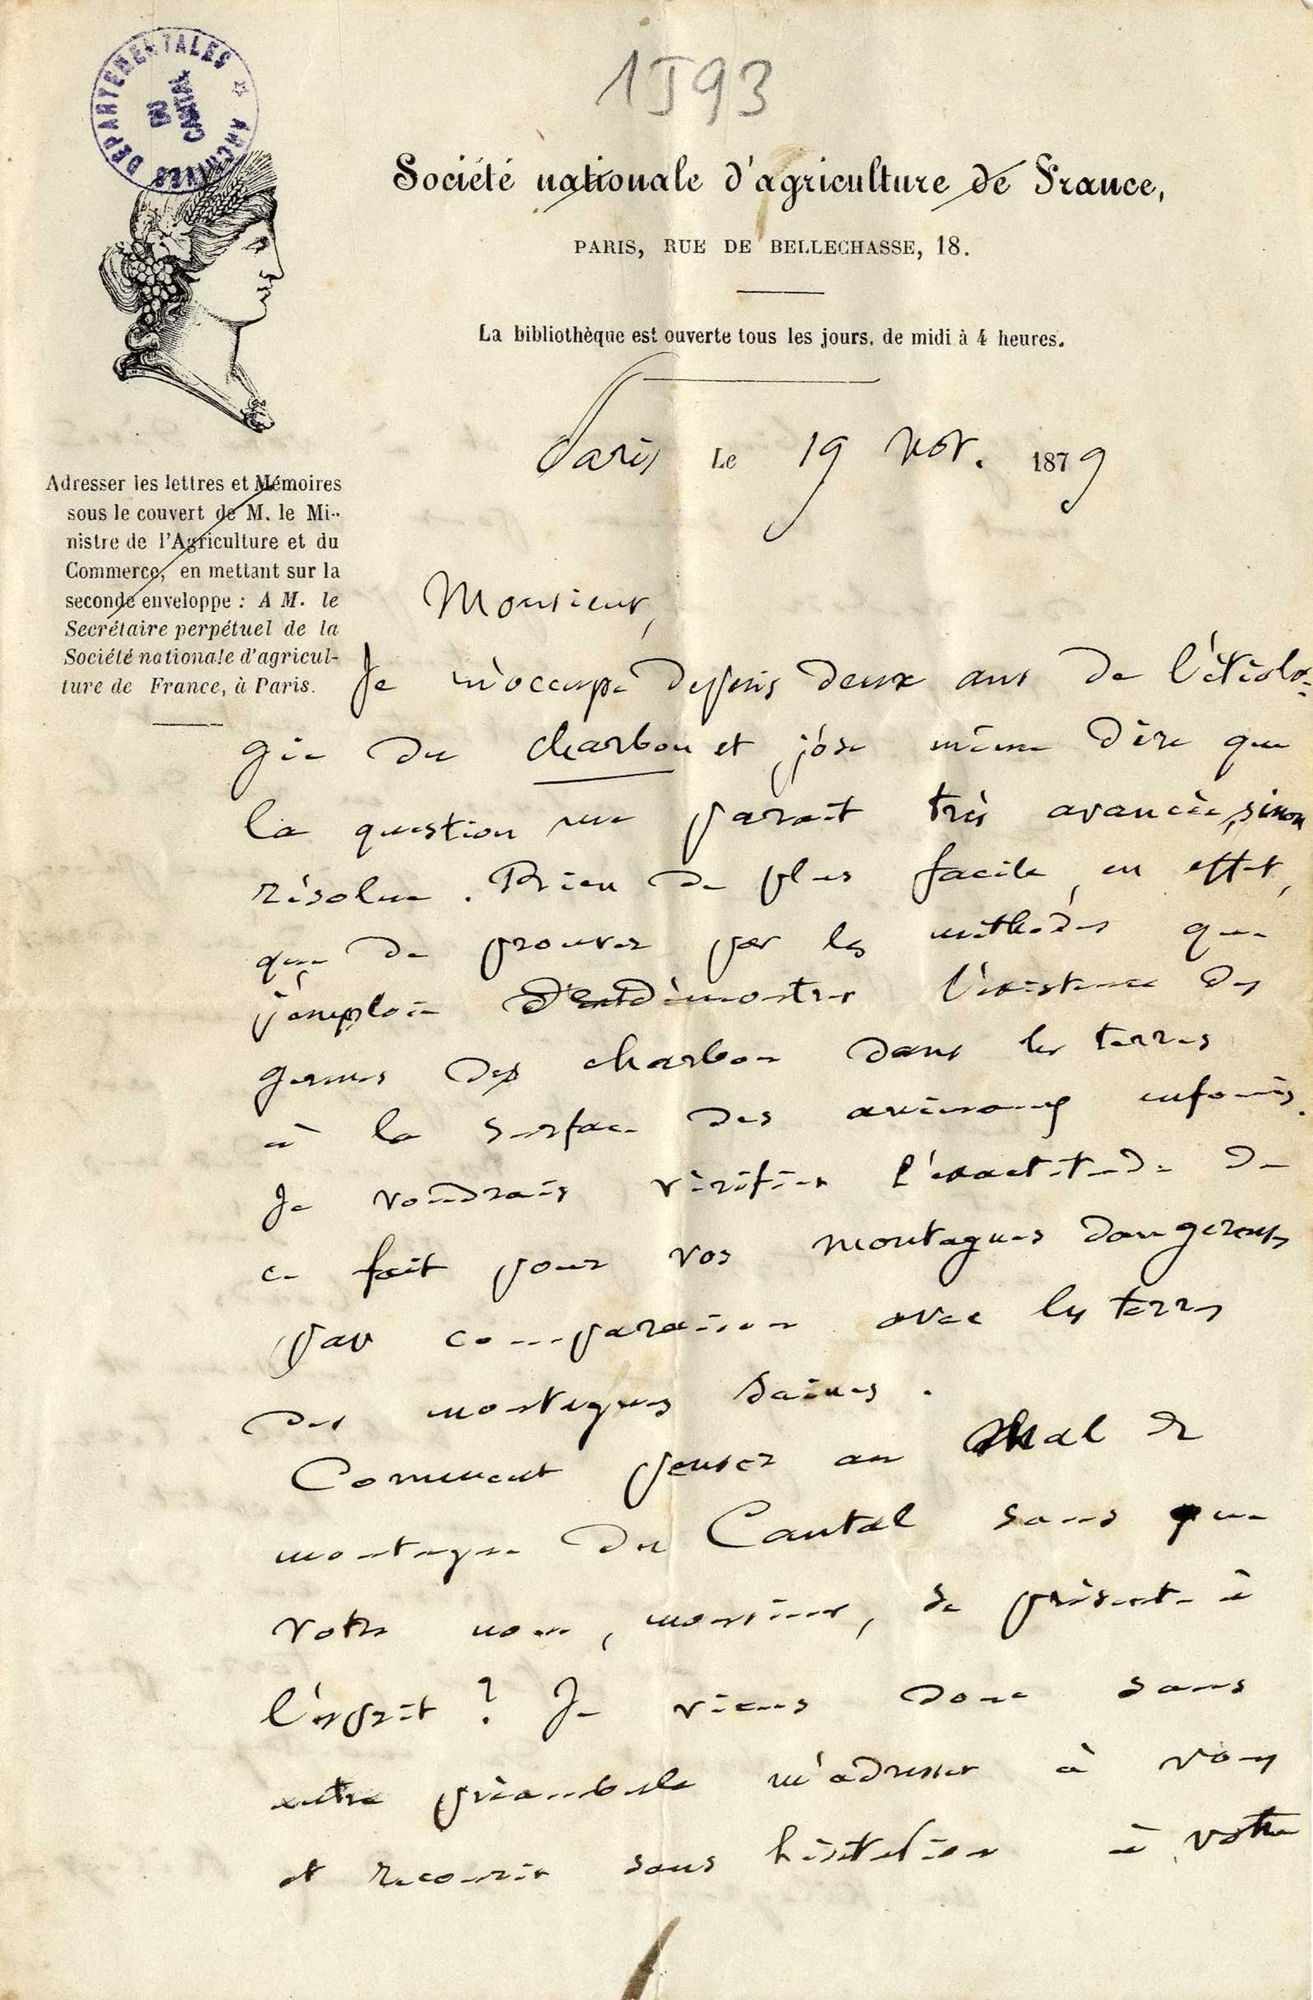 ARCHIVES DÉPARTEMENTALES
DU
CANTAL
1J93
Société nationale d'agriculture de France,
PARIS, RUE DE BELLECHASSE, 18.
La bibliothèque est ouverte tous les jours, de midi à 4 heures.
Paris Le 19 nov. 1879
Adresser les lettres et Mémoires
sous le couvert de M. le Mi-
nistre de l'Agriculture et du
Commerce, en mettant sur la
seconde enveloppe : A M. le
Secrétaire perpétuel de la
Société nationale d'agricul-
ture de France, à Paris.
Monsieur,
Je m'occupe depuis deux ans de l'étiolo=
gie du charbon et j'ose même dire que
la question me parait très avancée, sinon
résolue. Rien de plus facile, en effet,
que de prouver par les méthodes que
j'emploie démontrer l'existence des
germes des charbon dans les terres
à la surface des animaux enfouis.
Je voudrais vérifier l'exactitude de
ce fait pour vos montagnes dangereuses
par comparaison avec les terres
des montagnes saines.
Comment penser au Mal de
montagne du Cantal sans que
votre nom, monsieur, se présente à
l'esprit ? Je viens donc sans
autre préambule m'adresser à vous
et recourir sans hésitation à votre